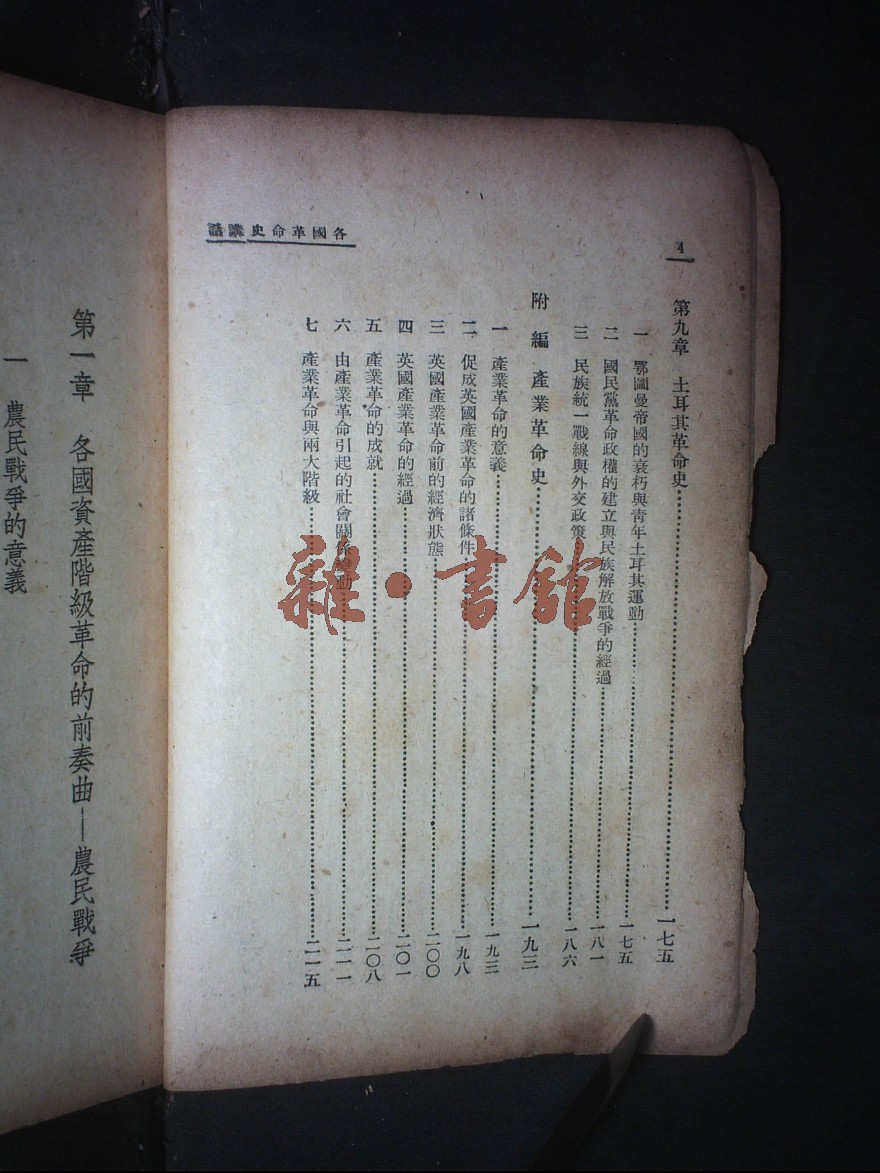 各國革命史講話
4
第九章 土耳其革命史……一七五
一 鄂圖曼帝國的衰朽與青年土耳其運動……一七五
二 國民黨革命政權的建立與民族解放戰爭的經過……一八一
三 民族統一戰線與外交政策……一八六
附編 產業革命史……一九三
一 產業革命的意義……一九三
二 促成英國產業革命的諸條件……一九八
三 英國產業革命前的經濟狀態……二〇〇
四 英國產業革命的經過……二〇一
五 產業革命的成就……二〇八
六 由產業革命引起的社會關係變動……二一一
七 產業革命與兩大階級……二一五
第一章 各國資產階級革命的前奏曲—農民戰爭
一 農民戰爭的意義
雜·書館